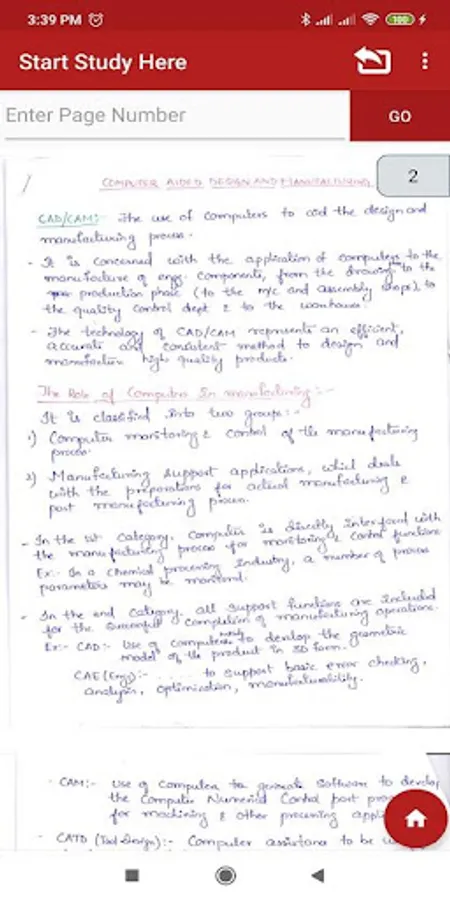 3:39 PM
100
Start Study Here
Enter Page Number
GO
2
COMPUTER AIDED DESIGN AND MANUFACTURING
CAD/CAM:- The use of Computers to aid the design and
manufacturing process.
- It is concerned with the application of computers to the
manufacture of engg. components, from the drawing to the
production phase (to the m/c and assembly shops), to
the quality control dept & to the warehouse.
- The technology of CAD/CAM represents an efficient,
accurate and consistent method to design and
manufacture high quality products.
The Role of Computers in manufacturing:-
It is classified into two groups:-
1) Computer monitoring & control of the manufacturing
process.
2) Manufacturing support applications, which deals
with the preparations for actual manufacturing &
post manufacturing process.
- In the 1st category, Computer is directly interfaced with
the manufacturing process for monitoring & control functions
Ex:- In a chemical processing industry, a number of process
parameters may be monitored.
- In the 2nd category, all support functions are included
for the successful completion of manufacturing operations.
Ex:- CAD:- Use of computers to develop the geometric
model of the product in 3D form.
CAE (Engg):- ..... to support basic error checking,
analysis, optimization, manufacturability.
- CAM:- Use of Computer to generate Software to develop
the Computer Numerical Control part
for machining & other processing
- CATD (Tool Design):- Computer assistance to be